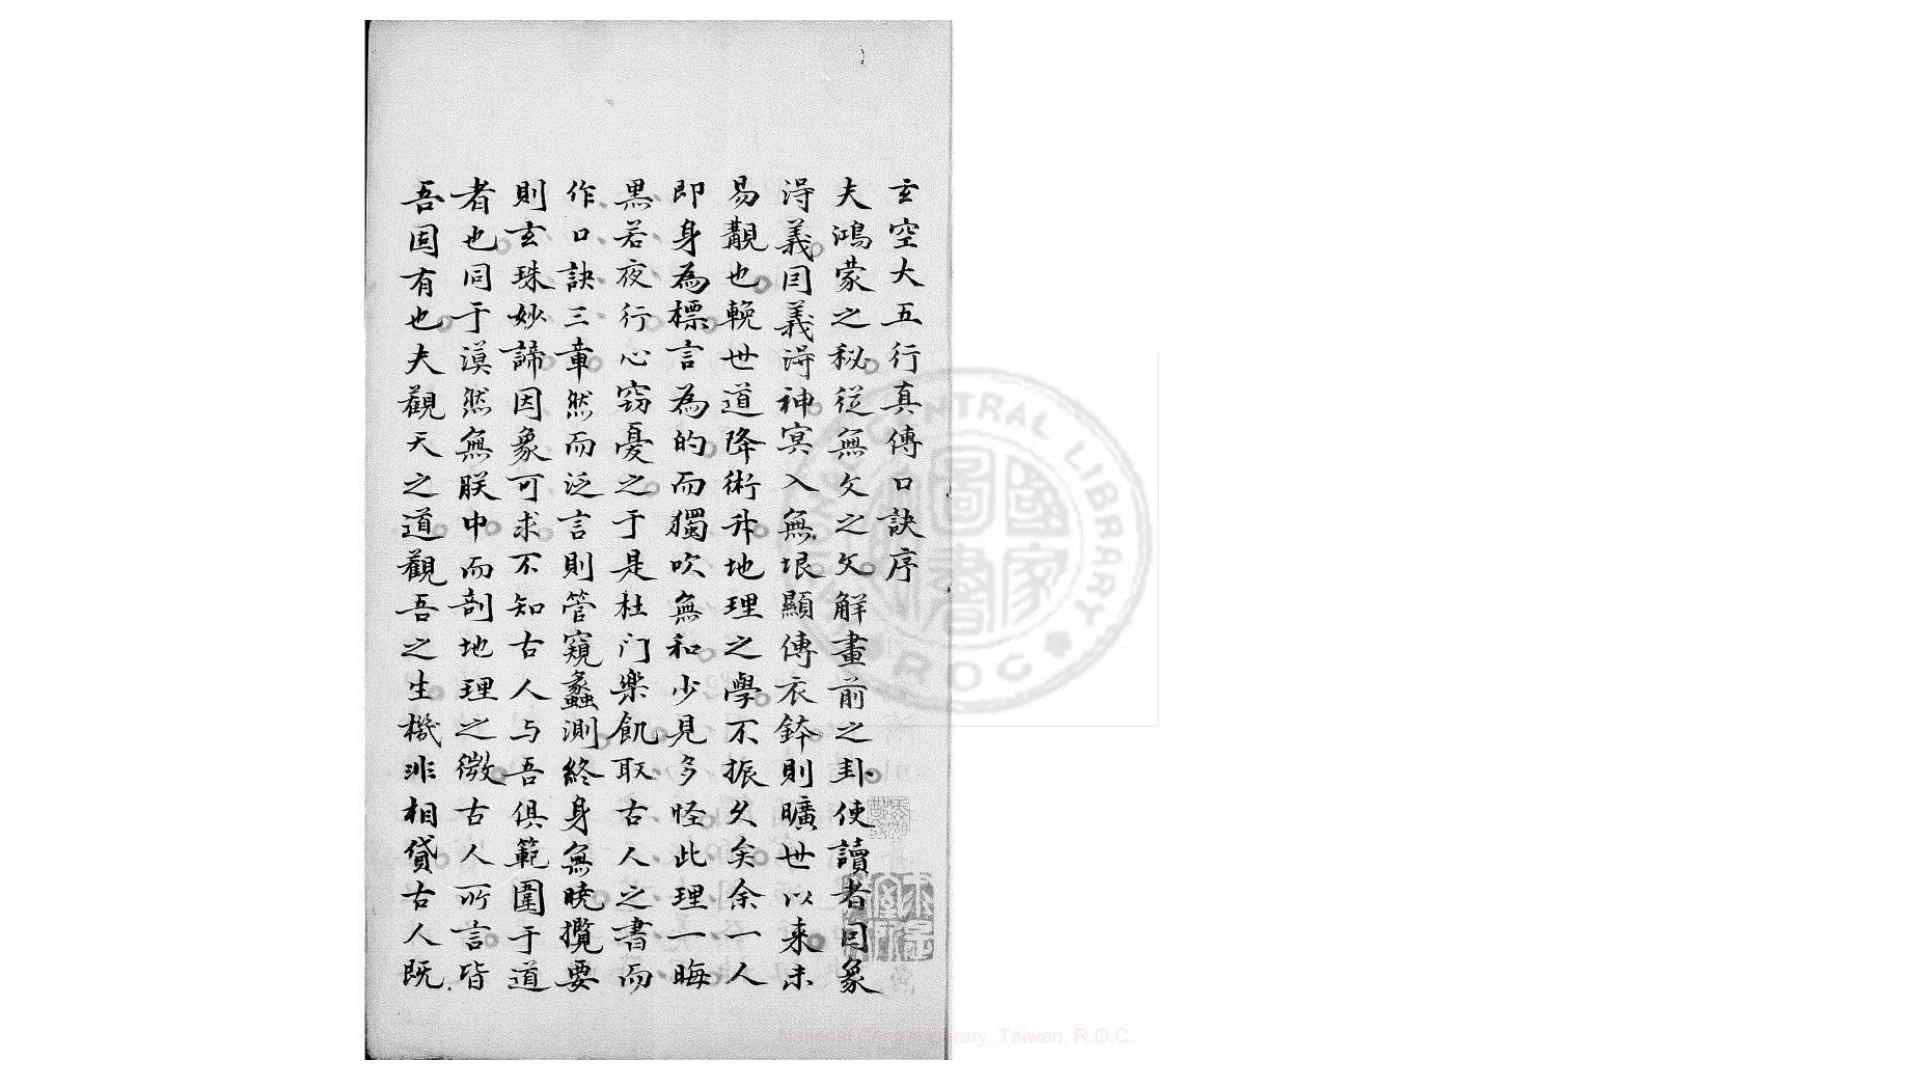 玄空大五行真傳口訣序
夫鴻蒙之秘從無文之文解畫前之卦使讀者因象
淂義囙義淂神㝠入無垠顯傳衣鉢則曠世以来未
易覯也輓世道降術升地理之學不振久矣余一人
即身為標言為的而獨吹無和少見多怪此理一晦
黒若夜行心窃憂之于是杜门樂飢取古人之書而
作口訣三章然而泛言則管窺蠡測終身無曉攬要
則玄珠妙諦因象可求不知古人与吾俱範圍于道
者也同于漠然無朕中而剖地理之微古人所言皆
吾固有也夫觀天之道觀吾之生機非相貸古人既
CENTRAL LIBRARY
ROC
國家圖書
National Central Library, Taiwan, R.O.C.